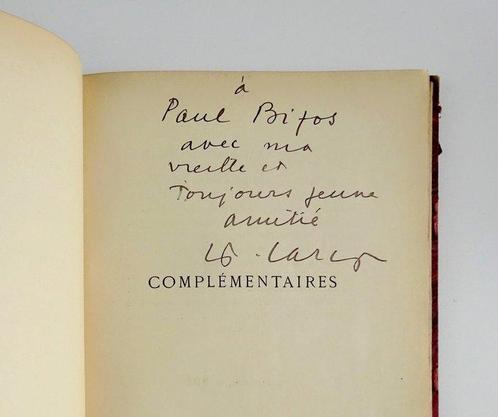 à
Paul Bifos
avec ma
vieille et
toujours jeune
amitié
COMPLÉMENTAIRES